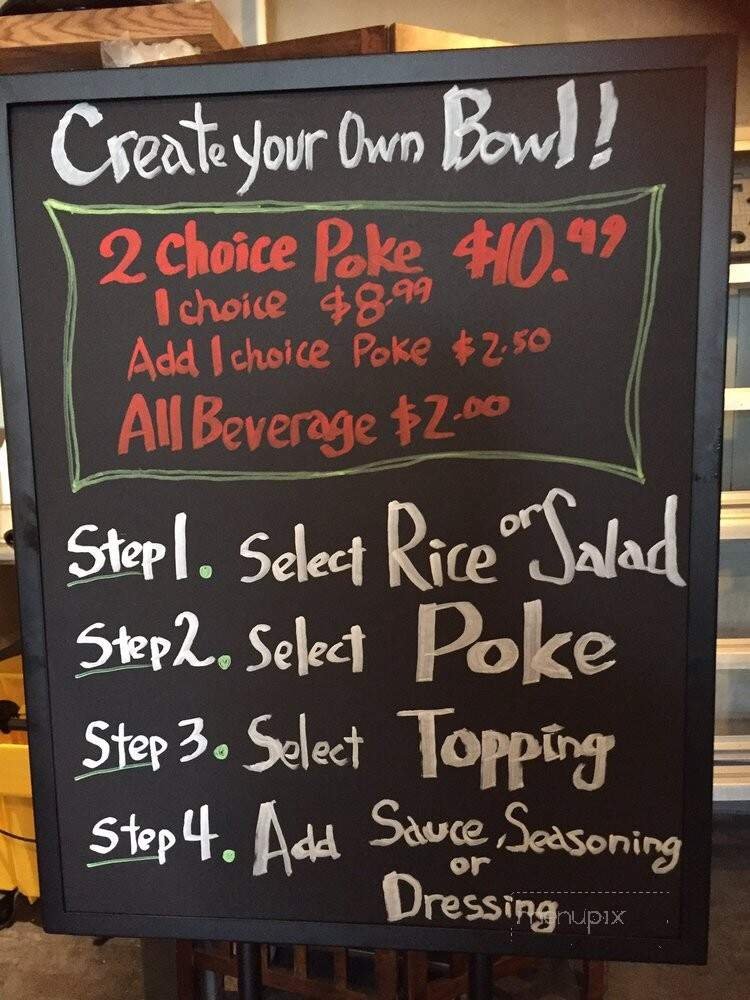 Create your Own Bowl!
2 Choice Poke $10.49
1 choice $8.99
Add 1 choice Poke $2.50
All Beverage $2.00
Step 1. Select Rice or Salad
Step 2. Select Poke
Step 3. Select Topping
Step 4. Add Sauce, Seasoning
or
Dressing
menupix